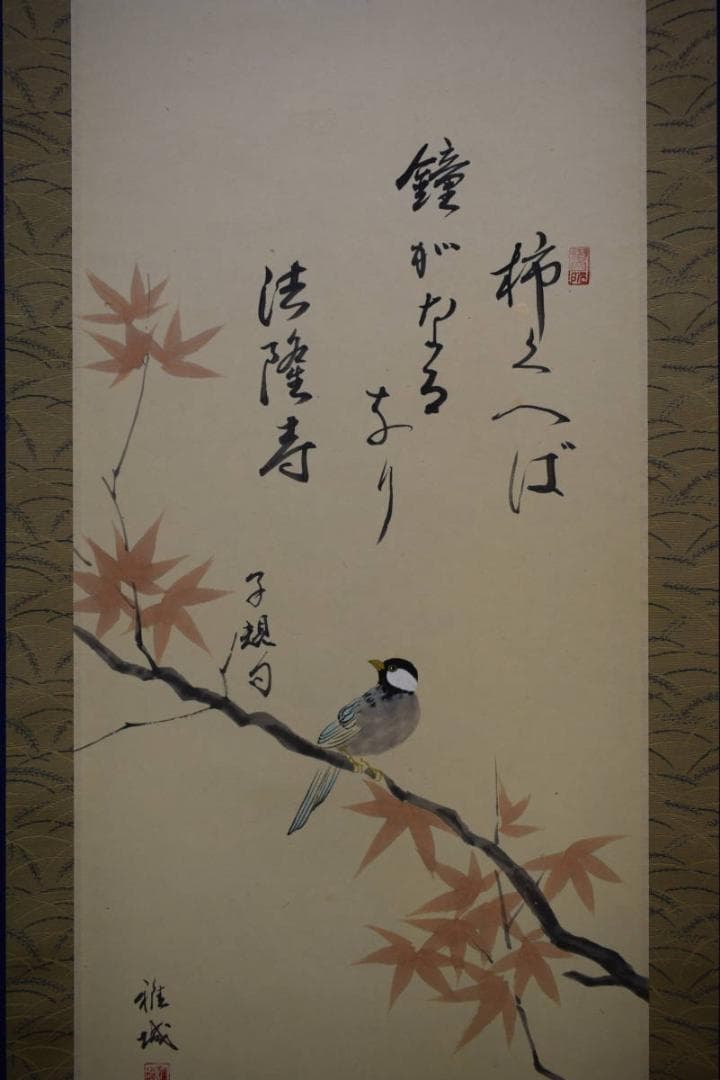 柿くへば
鐘がなる
なり
法隆寺
子規句
雅城